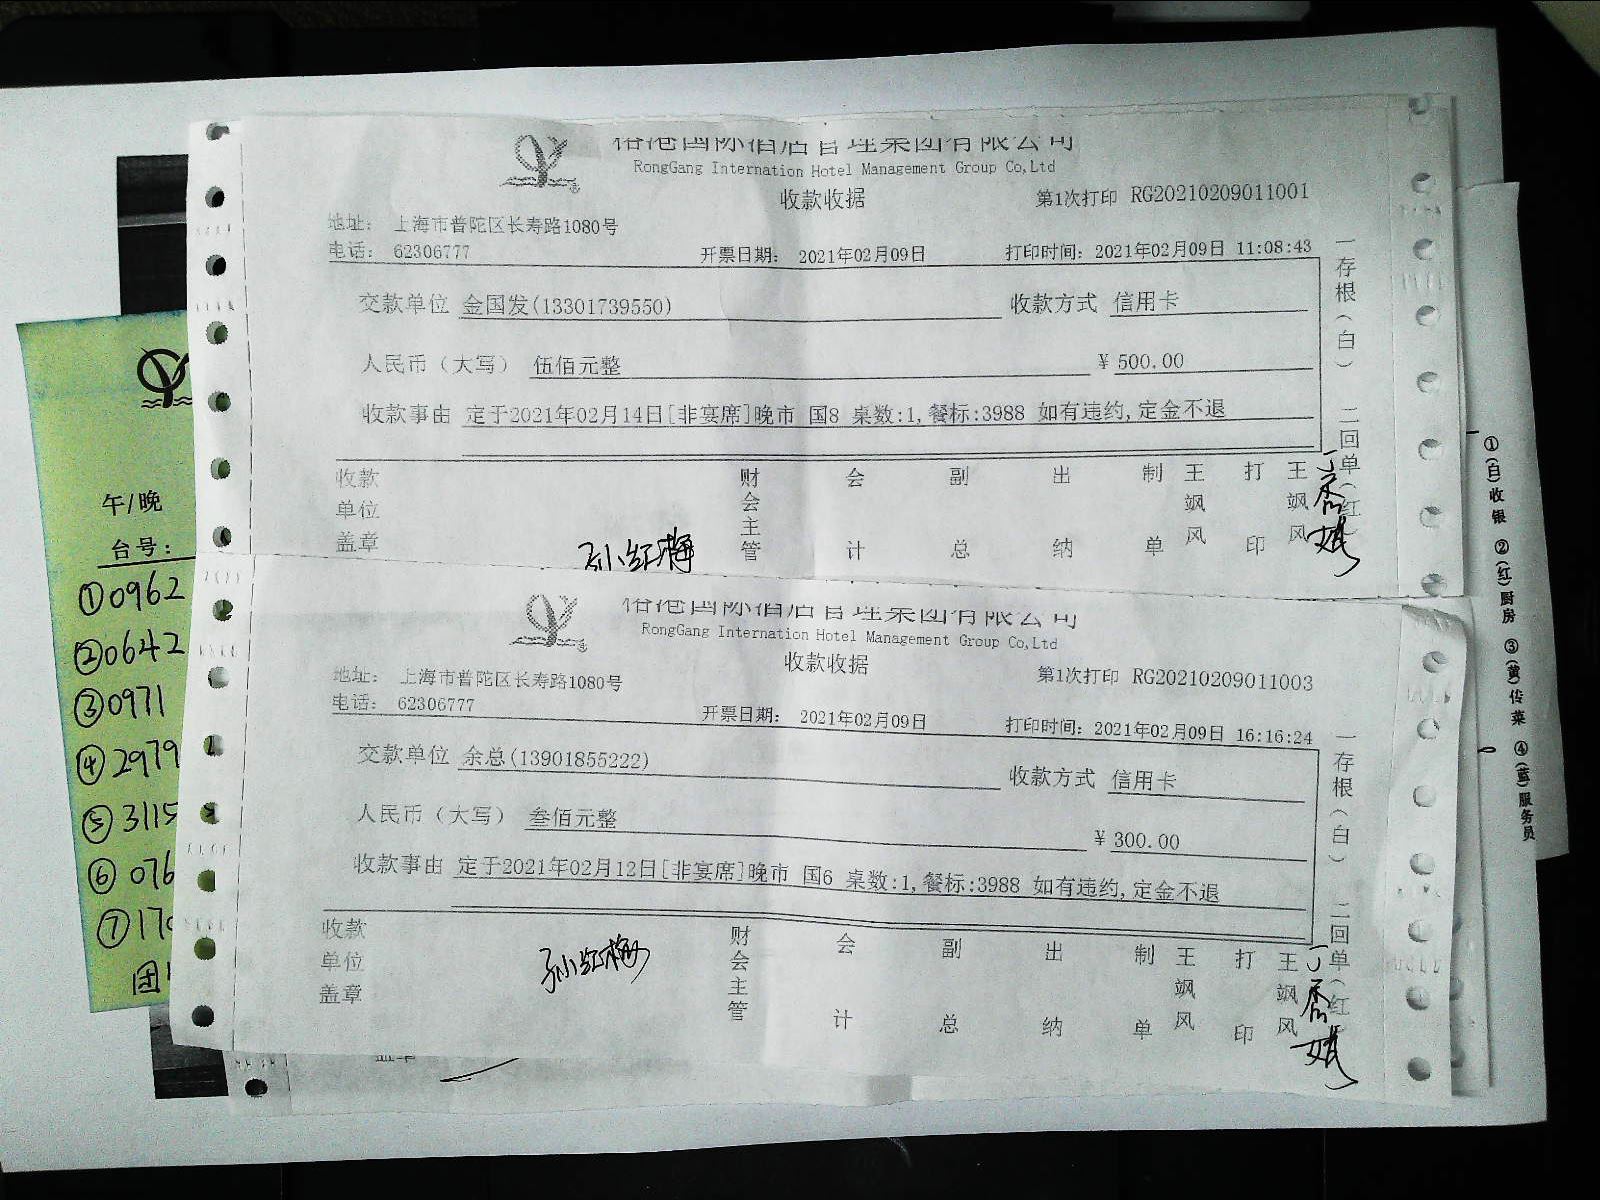 RongGang Internation Hotel Management Group Co,Ltd
收款收据
第1次打印 RG20210209011001
地址: 上海市普陀区长寿路1080号
电话: 62306777
开票日期: 2021年02月09日
打印时间: 2021年02月09日 11:08:43
交款单位 金国发(13301739550)
收款方式 信用卡
人民币(大写) 伍佰元整
¥ 500.00
收款事由 定于2021年02月14日[非宴席]晚市 国8 桌数:1,餐标:3988 如有违约,定金不退
收款单位盖章
孙红梅
财会主管
会计
副总
出纳
制单
王飒风
打印
王飒风
一存根(白) 二回单(红)
RongGang Internation Hotel Management Group Co,Ltd
收款收据
第1次打印 RG20210209011003
地址: 上海市普陀区长寿路1080号
电话: 62306777
开票日期: 2021年02月09日
打印时间: 2021年02月09日 16:16:24
交款单位 余总(13901855222)
收款方式 信用卡
人民币(大写) 叁佰元整
¥ 300.00
收款事由 定于2021年02月12日[非宴席]晚市 国6 桌数:1,餐标:3988 如有违约,定金不退
收款单位盖章
孙红梅
财会主管
会计
副总
出纳
制单
王飒风
打印
王飒风
一存根(白) 二回单(红)
午/晚
台号:
①0962
②0642
③0971
④2979
⑤3115
⑥076
⑦170
团
①(白)收银 ②(红)厨房 ③(黄)传菜 ④(蓝)服务员